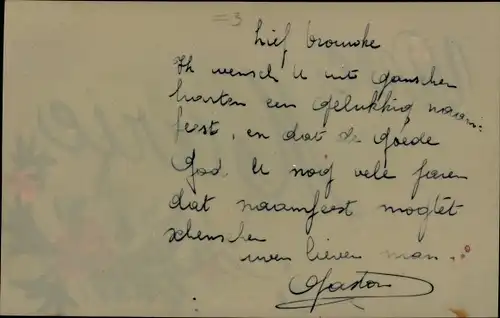 =3
Lief vrouwke
Ik wensch U uit ganscher
harten een gelukkig naam-
feest, en dat de goede
God U noig vele jaren
dat naamfeest mogtet
schenken
uwen lieven man.
Gaston